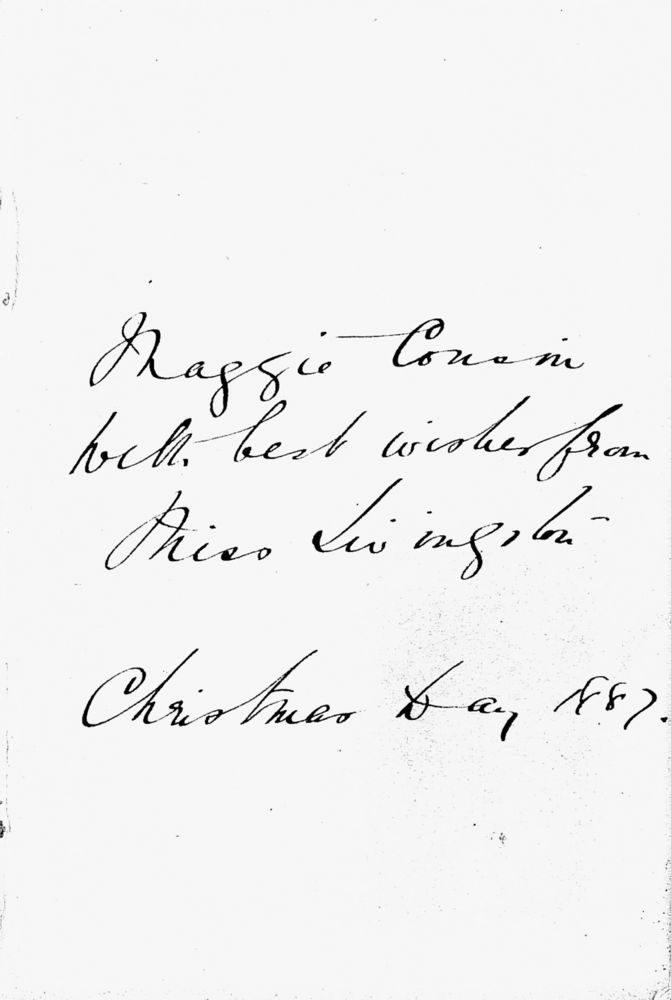 Maggie Cousin
with best wishes from
Miss Livingston
Christmas Day 1887.